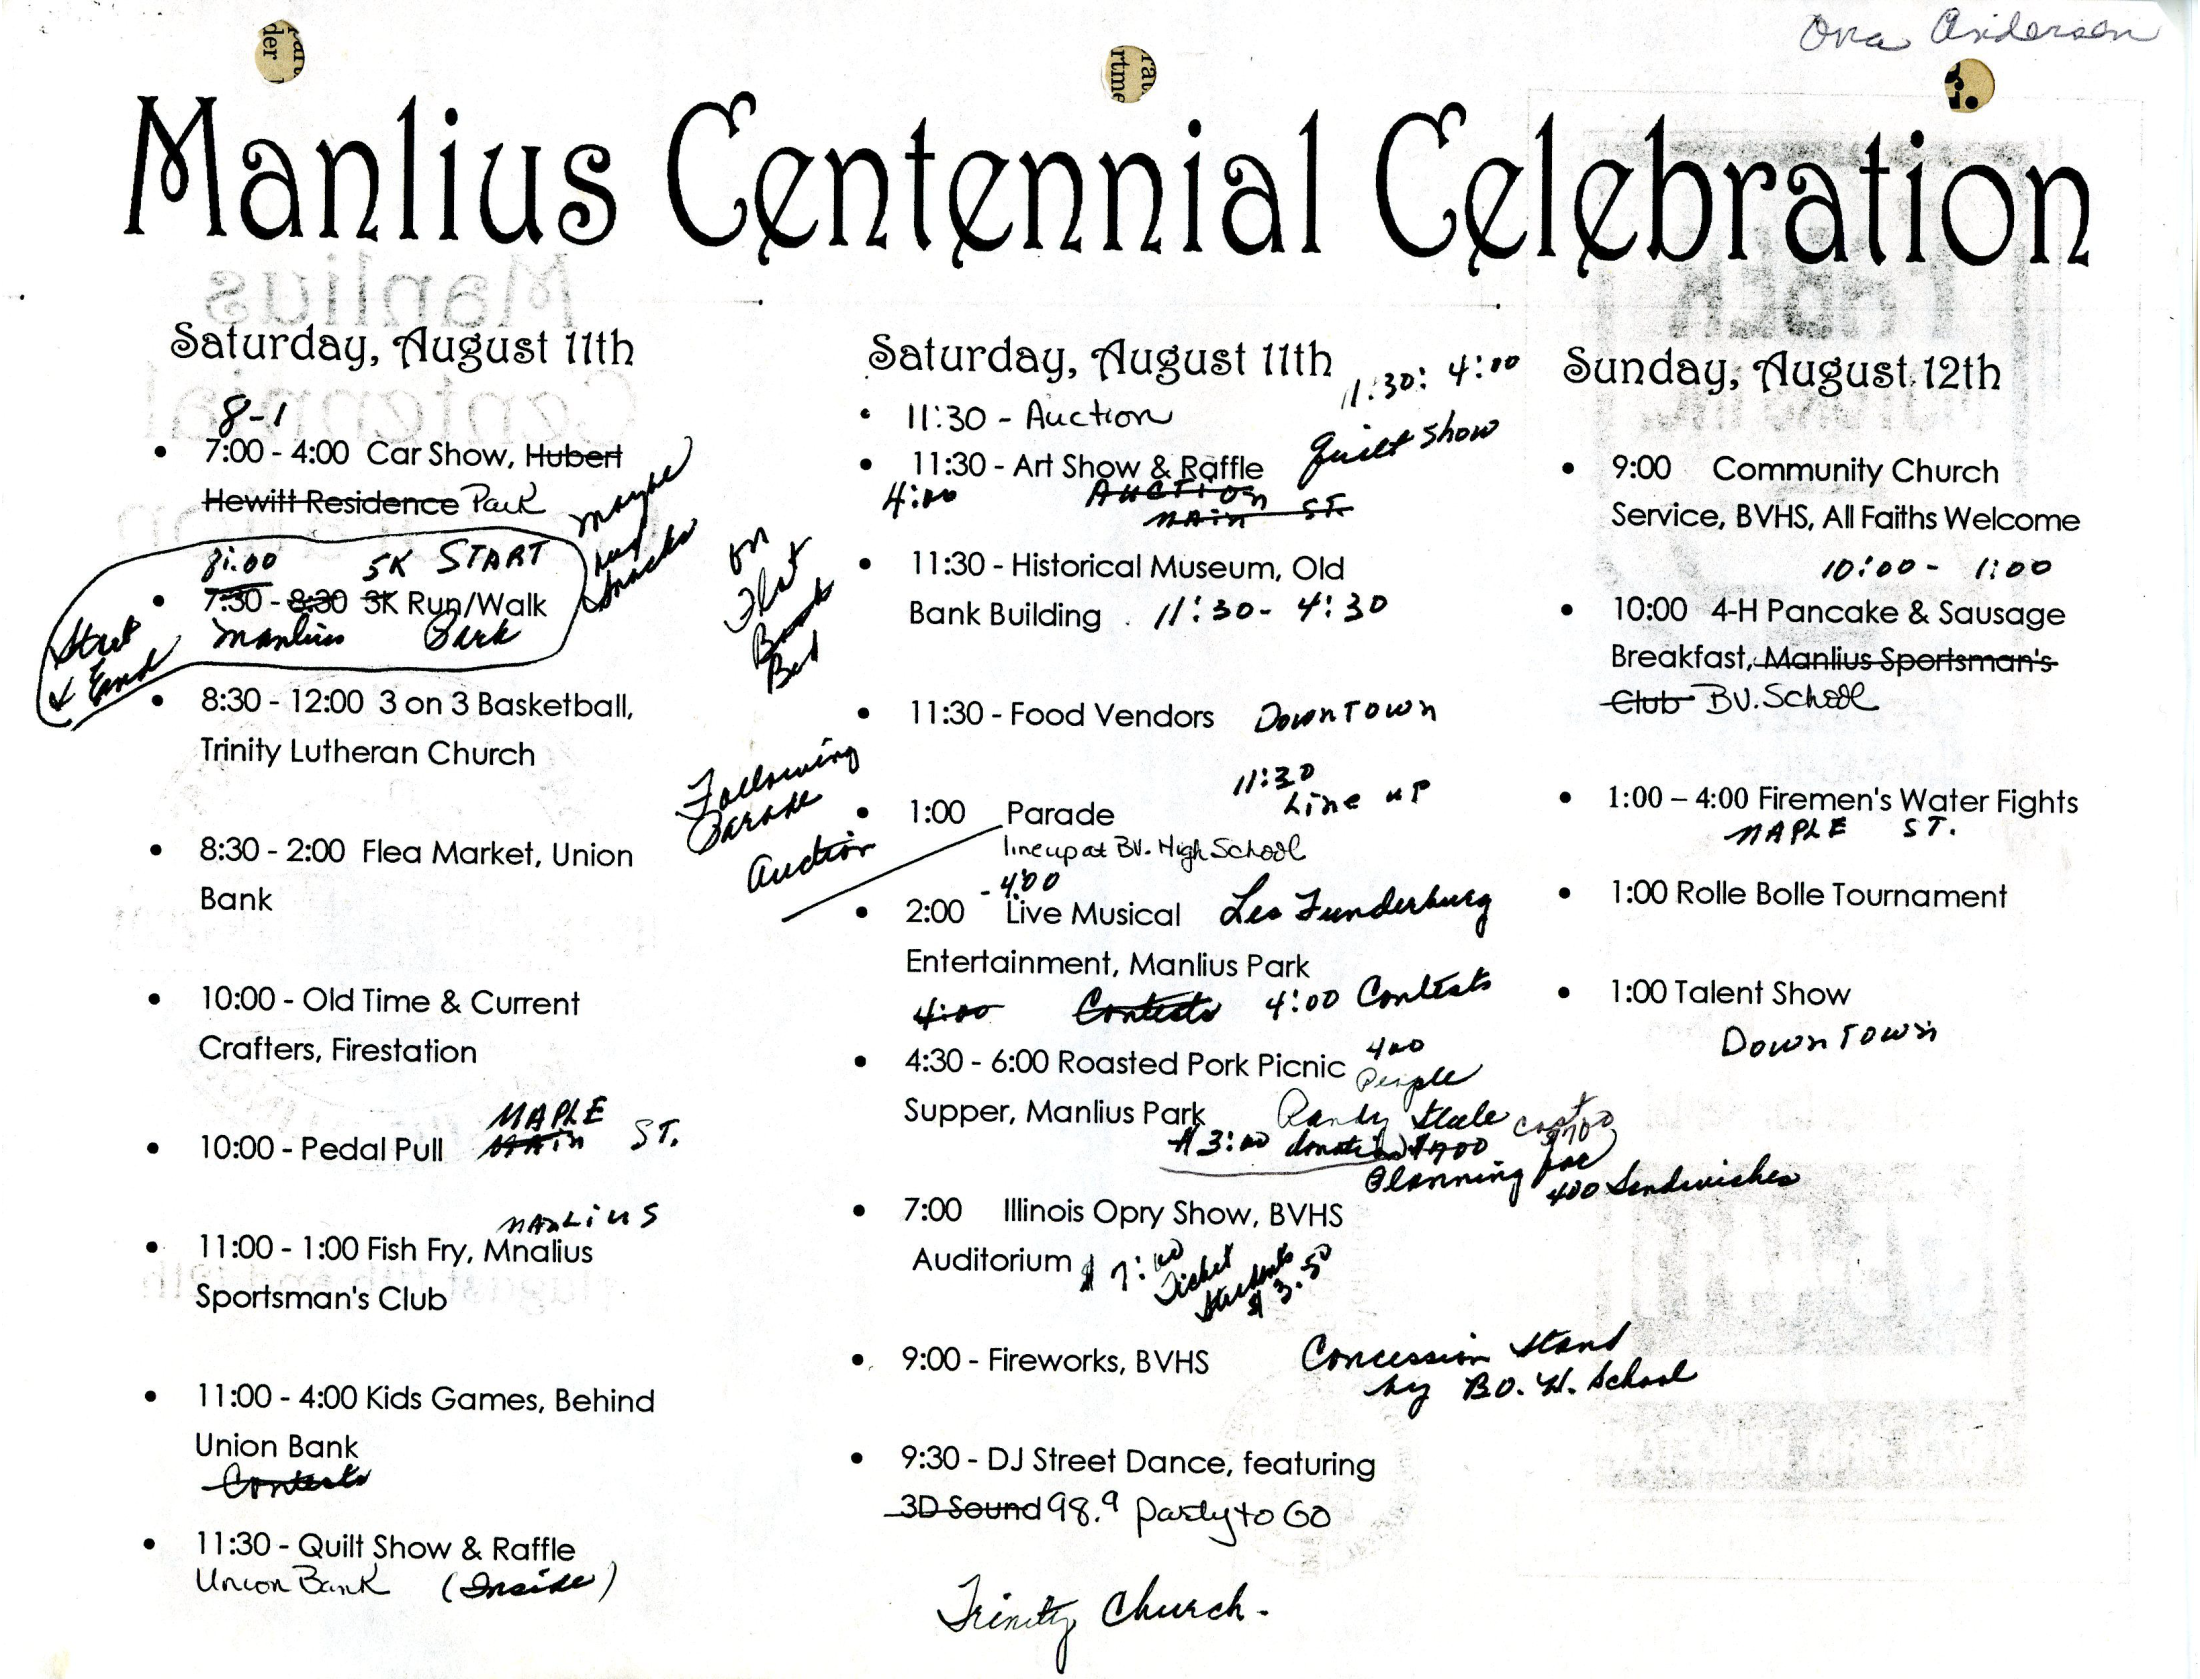 Ova Andersen
Manlius Centennial Celebration
Saturday, August 11th
8-1
• 7:00 - 4:00 Car Show, Hubert
Hewitt Residence Park
maybe
snacks
8:00 5K START
• 7:30 - 8:30 3K Run/Walk
Manlius Park
Start
& End
• 8:30 - 12:00 3 on 3 Basketball,
Trinity Lutheran Church
• 8:30 - 2:00 Flea Market, Union
Bank
• 10:00 - Old Time & Current
Crafters, Firestation
MAPLE
• 10:00 - Pedal Pull MAIN ST.
MANLIUS
• 11:00 - 1:00 Fish Fry, Mnalius
Sportsman's Club
• 11:00 - 4:00 Kids Games, Behind
Union Bank
Contests
• 11:30 - Quilt Show & Raffle
Union Bank (Inside)
Saturday, August 11th
11:30: 4:00
Quilt Show
• 11:30 - Auction
• 11:30 - Art Show & Raffle
4:00 AUCTION
MAIN ST.
on
Flat
Bed
• 11:30 - Historical Museum, Old
Bank Building 11:30 - 4:30
• 11:30 - Food Vendors DOWNTOWN
Following
Parade
Auction
11:30
Line up
• 1:00 Parade
line up at BV. High School
- 4:00
• 2:00 Live Musical Les Funderburg
Entertainment, Manlius Park
4:00 Contests 4:00 Contests
• 4:30 - 6:00 Roasted Pork Picnic 400
People
Supper, Manlius Park Randy Steele cost
$700
$3:00 donation $700
Planning for
400 Sandwiches
• 7:00 Illinois Opry Show, BVHS
Auditorium $7:00
Ticket
Students
$3.50
• 9:00 - Fireworks, BVHS Concession Stand
by B.V. H. School
• 9:30 - DJ Street Dance, featuring
3D Sound 98.9 Party to Go
Trinity Church -
Sunday, August 12th
• 9:00 Community Church
Service, BVHS, All Faiths Welcome
10:00 - 1:00
• 10:00 4-H Pancake & Sausage
Breakfast, Manlius Sportsman's
Club BV. School
• 1:00 – 4:00 Firemen's Water Fights
MAPLE ST.
• 1:00 Rolle Bolle Tournament
• 1:00 Talent Show
DOWNTOWN